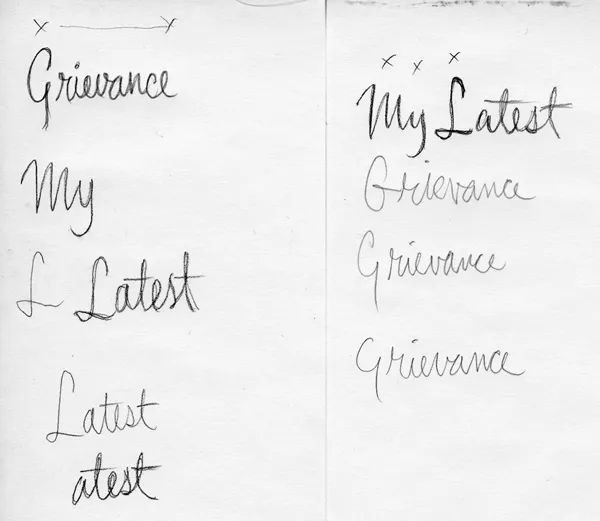 x x
Grievance
My
L Latest
Latest
atest
x x x
My Latest
Grievance
Grievance
Grievance